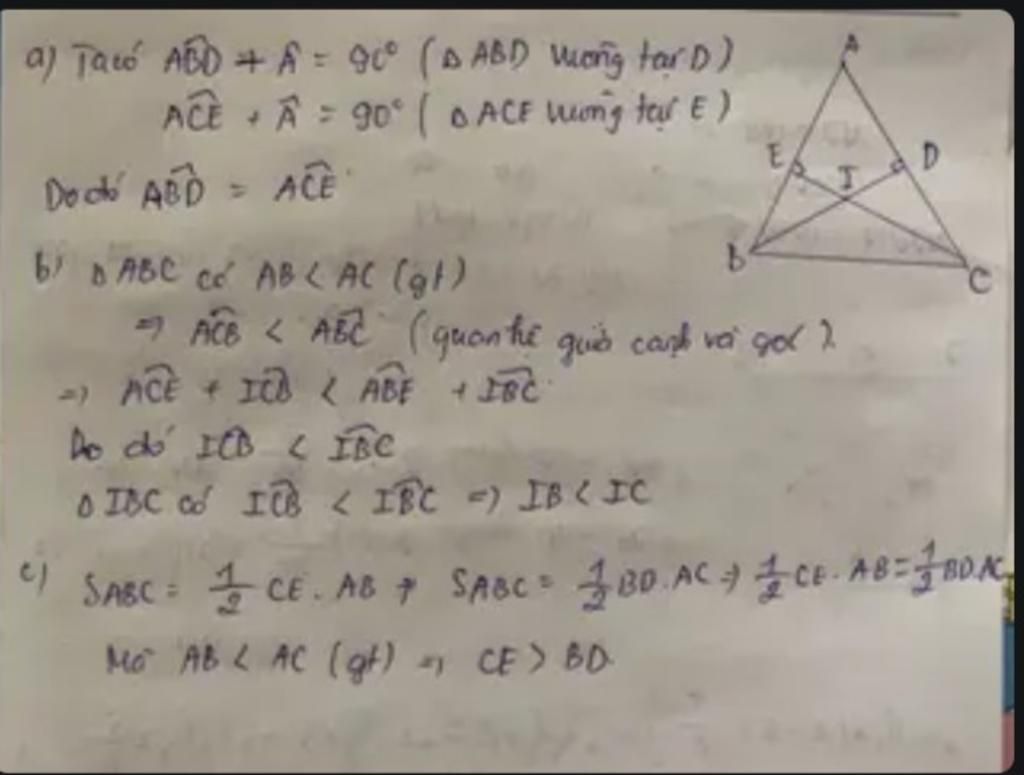 a) Ta có ABD̂ + Â = 90° (△ ABD vuông tại D)
ACÊ + Â = 90° (△ ACE vuông tại E)
Do đó ABD̂ = ACÊ
b) △ ABC có AB < AC (gt)
=> ACB̂ < ABĈ (quan hệ giữa cạnh và góc)
=> ACÊ + ICB̂ < ABÊ + IBĈ
Do đó ICB̂ < IBĈ
△ IBC có ICB̂ < IBĈ => IB < IC
c) SABC = 1/2 CE . AB, SABC = 1/2 BD . AC => 1/2 CE . AB = 1/2 BD . AC
Mà AB < AC (gt) => CE > BD
A
E
I
D
B
C